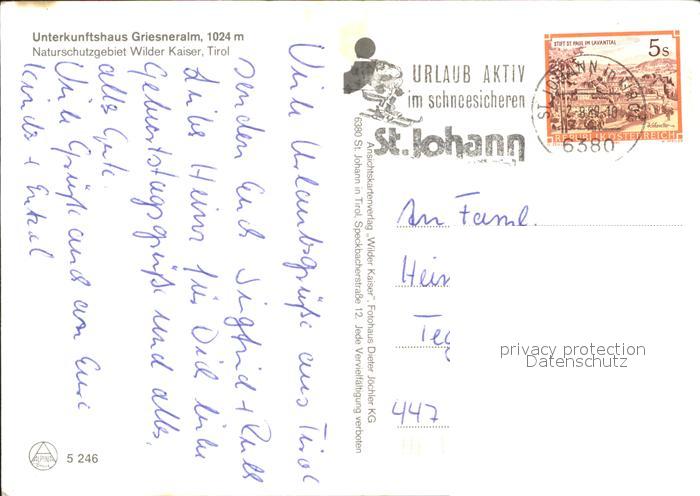 Unterkunftshaus Griesneralm, 1024 m
Naturschutzgebiet Wilder Kaiser, Tirol
Viele Urlaubsgrüße aus Tirol
senden Euch Sigfrid + Ruth
Liebe Heins für Dich liebe
Geburtstagsgrüße und alles,
alles Gute.
Viele Grüße auch an Eure
Kinder + Enkel
5 246
Ansichtskartenverlag „Wilder Kaiser", Fotohaus Dieter Jöchler KG
6380 St. Johann in Tirol, Speckbacherstraße 12, Jede Vervielfältigung verboten
URLAUB AKTIV
im schneesicheren
St. Johann
ST. JOHANN in TIROL
6380
STIFT ST. PAUL IM LAVANTTAL
5 S
REPUBLIK ÖSTERREICH
An Faml.
Hein
Teg
447
privacy protection
Datenschutz